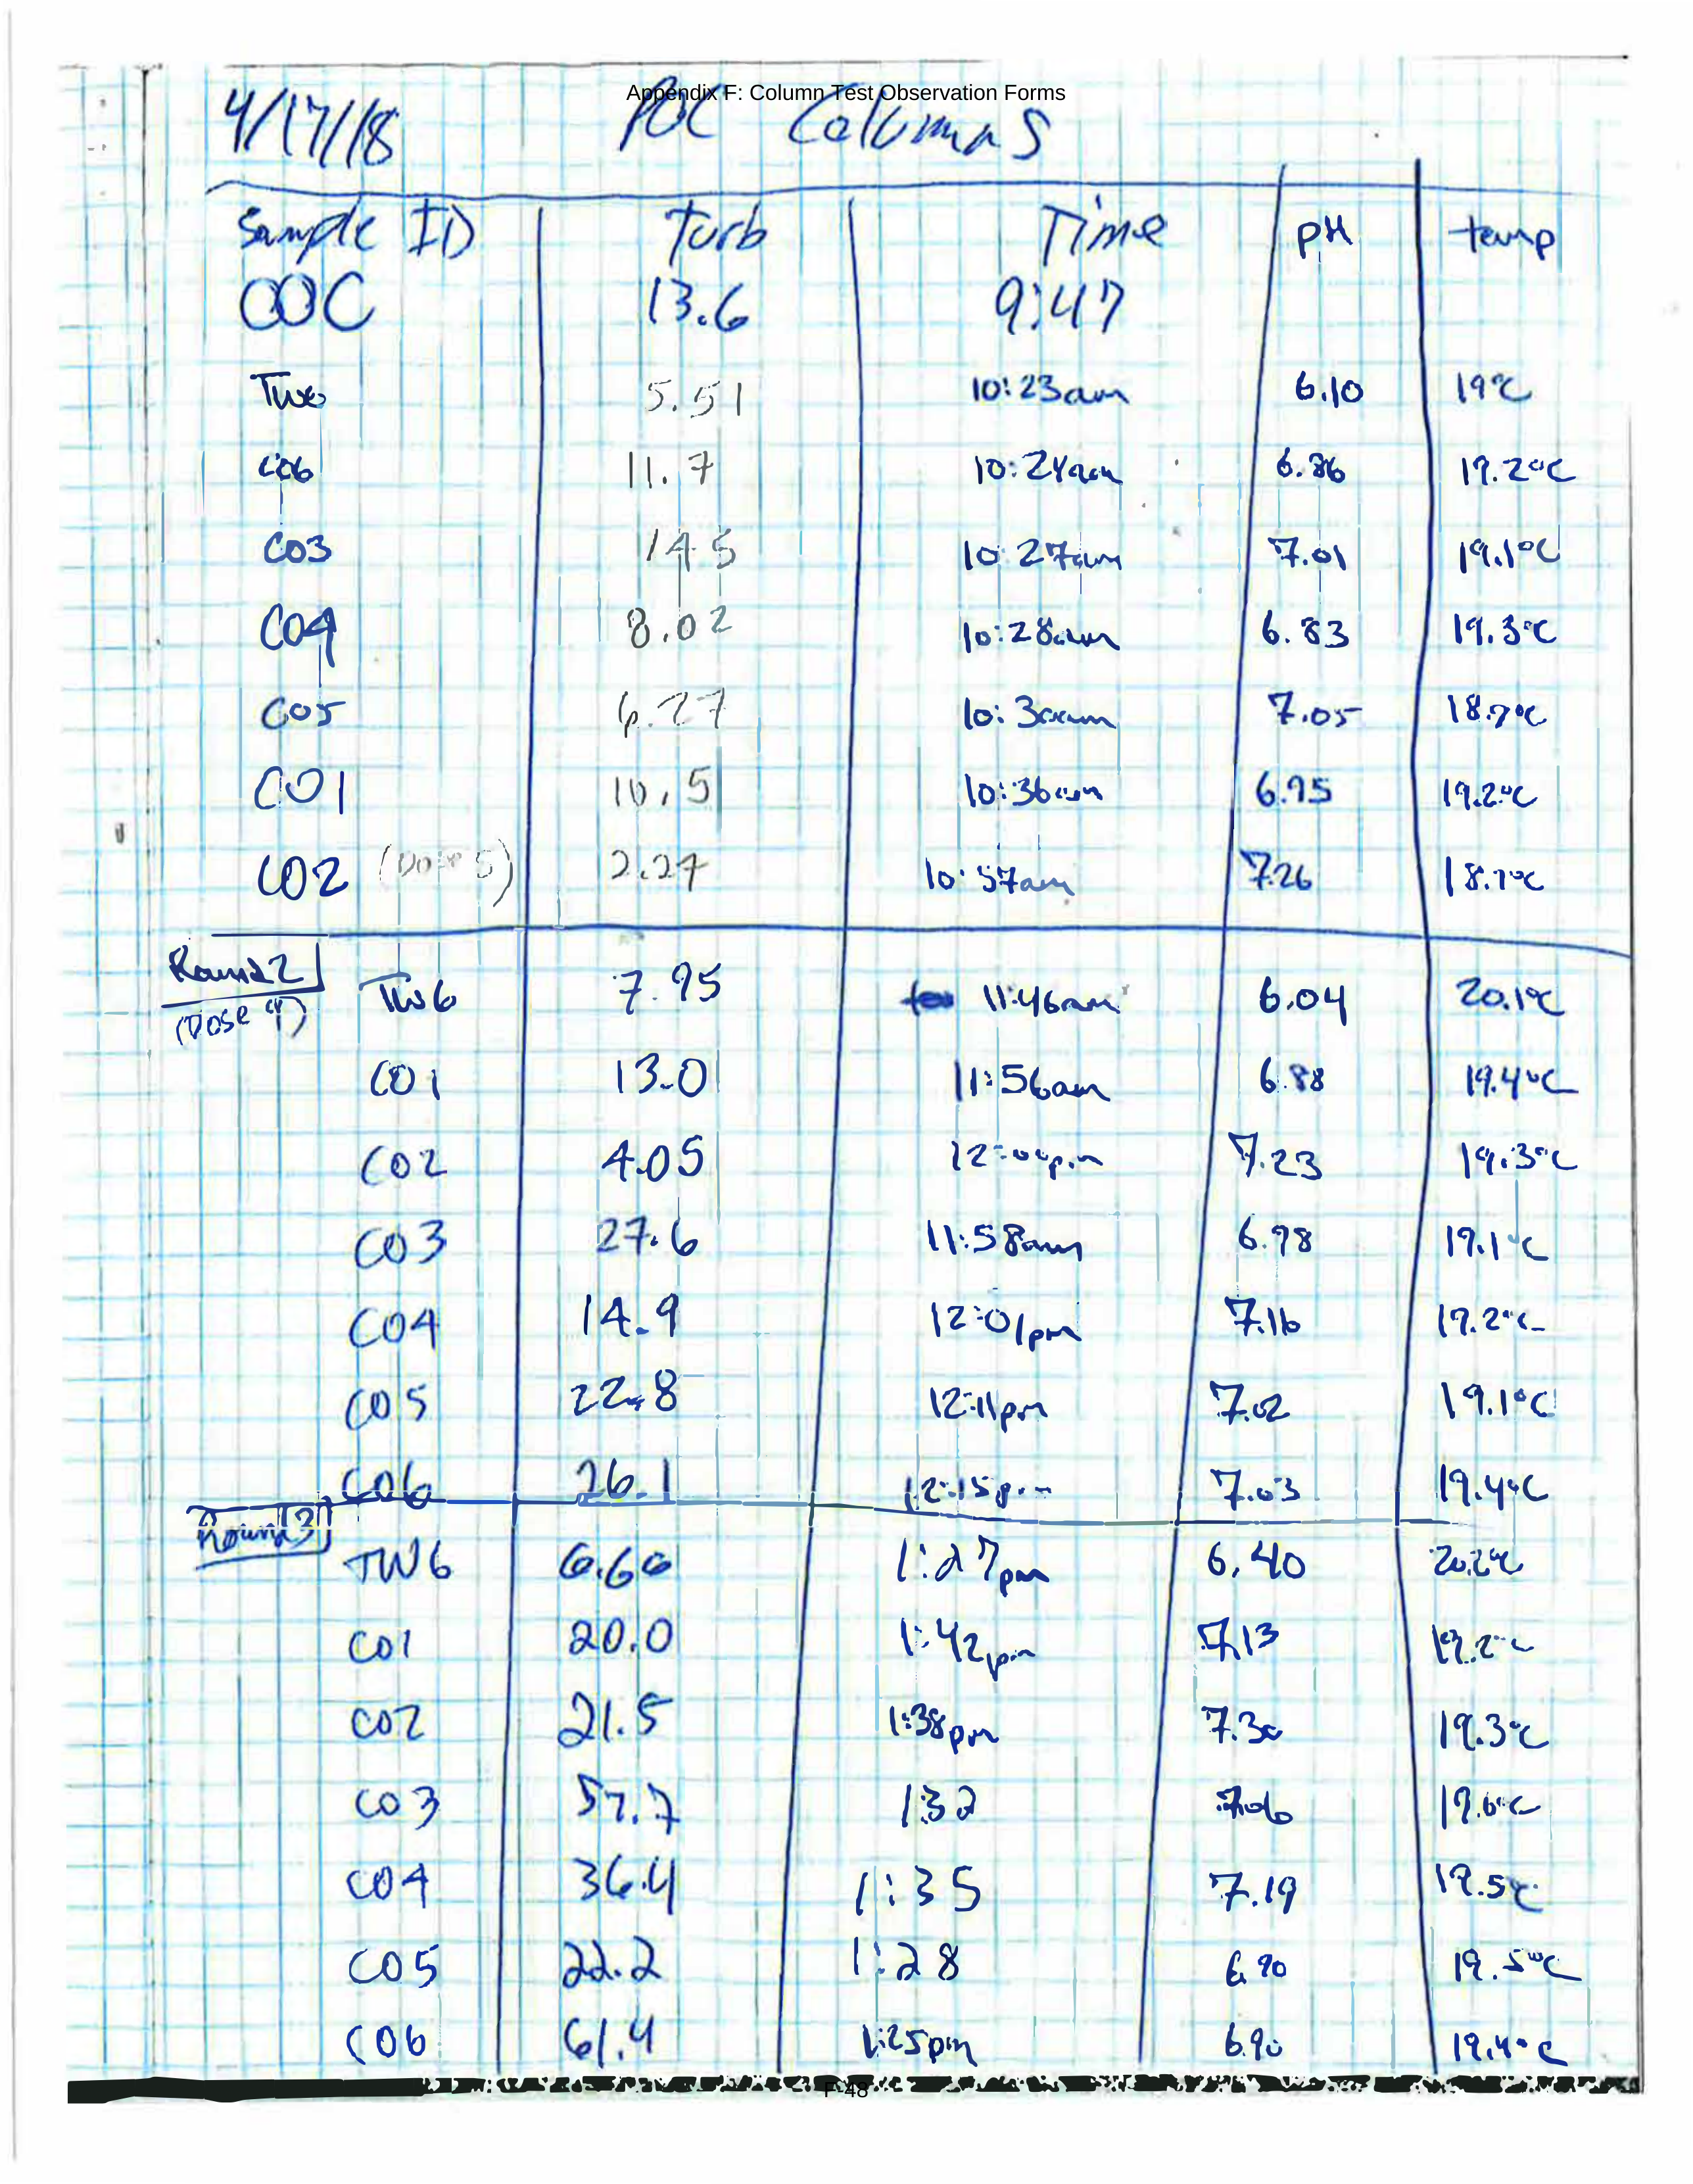 Appendix F: Column Test Observation Forms
4/17/18 POC Columns
Sample ID Turb Time pH temp
COC 13.6 9:47
TW6 5.51 10:23am 6.10 19°C
C06 11.7 10:24am 6.86 19.2°C
C03 14.5 10:27am 7.01 19.1°C
C04 8.02 10:28am 6.83 19.3°C
C05 6.27 10:30am 7.05
C01 10.5 10:36am 6.95 19.2°C
C02 (Dose 5) 2.27 10:57am 7.26
Round 2
(Dose 4) TW6 7.95 11:46am 6.04 20.1°C
C01 13.0 11:56am 6.88 19.4°C
C02 4.05 7.23 19.3°C
C03 27.6 11:58am 6.98 19.1°C
C04 14.9 12:01pm 7.16 19.2°C
C05 22.8 12:11pm 7.02 19.1°C
C06 26.1 12:15pm 7.03 19.4°C
Round 3
TW6 6.66 1:27pm 6.40 20.2°C
C01 20.0 1:42pm 7.13 19.2°C
C02 21.5 1:38pm 7.30 19.3°C
C03 57.7 1:32 7.06 19.6°C
C04 36.4 1:35 7.19 19.5°C
C05 22.2 1:28 6.90 19.5°C
C06 61.4 1:25pm 6.90 19.4°C
F-48